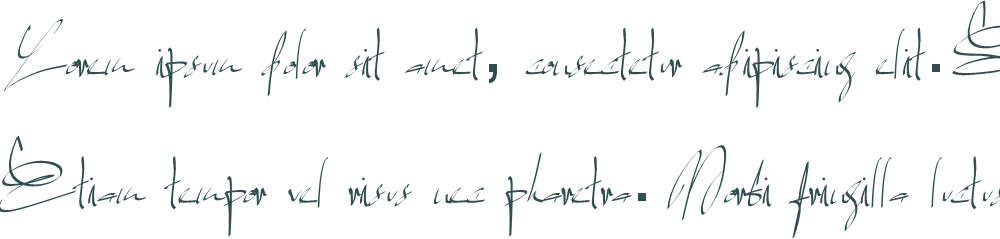 Lorem ipsum dolor sit amet, consectetur adipiscing elit. E
Etiam tempor vel risus nec pharetra. Morbi fringilla luctus